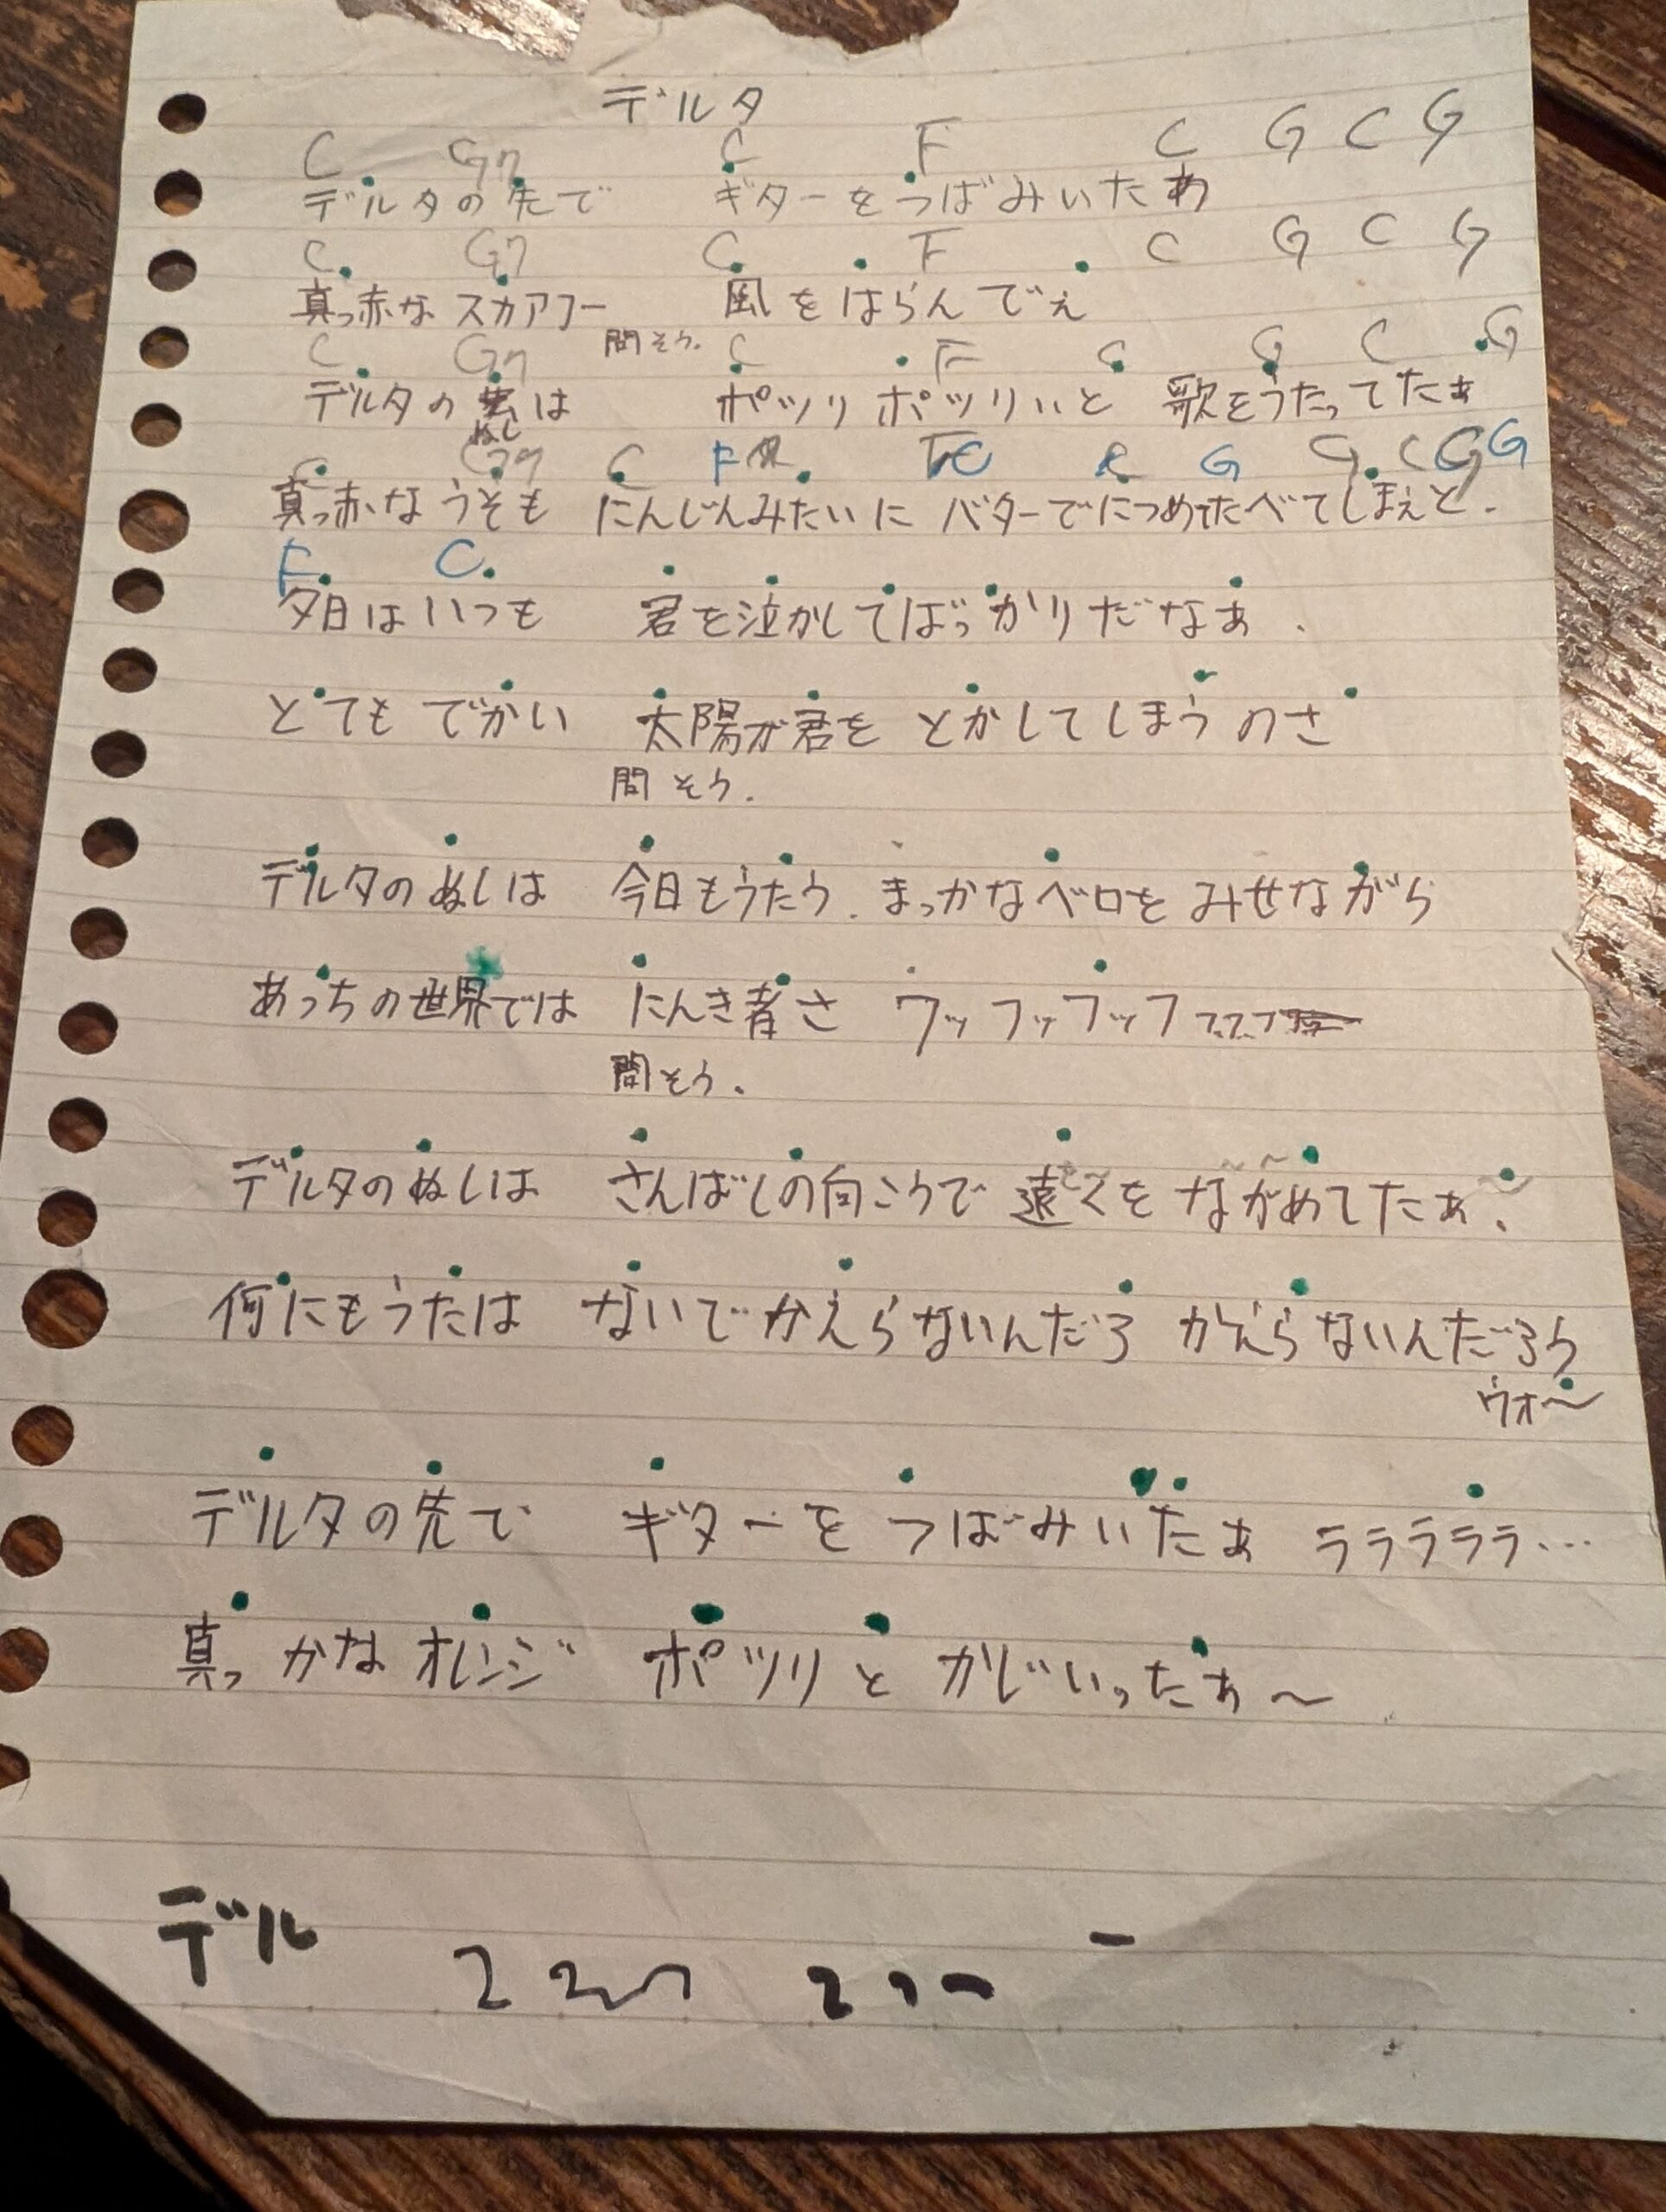 デルタ
C G7 C F C G C G
デルタの先で ギターをつばみいたあ
C G7 C F C G C G
真っ赤な スカアフー 風をはらんでぇ
間そう.
C G7 C F C G C G
デルタの は ポツリポツリぃと 歌をうたってたぁ
ぬし
C G7 C F FC C G G C G G
真っ赤なうそも にんじんみたいに バターでにつめてたべてしまぇと.
F C
夕日はいつも 君を泣かしてばっかりだなぁ.
とてもでかい 太陽が君を とかしてしまうのさ
間そう.
デルタのぬしは 今日もうたう. まっかなベロを みせながら
あっちの世界では にんき者さ ワッフッフッフ
間そう.
デルタのぬしは さんばしの向こうで 遠くを ながめてたぁ.
何にもうたは ないでかえらないんだろ かえらないんだろう
ウォ〜
デルタの先で ギターを つばみぃたぁ ラララララ...
真っかなオレンジ ポツリと かじぃったぁ〜
デル